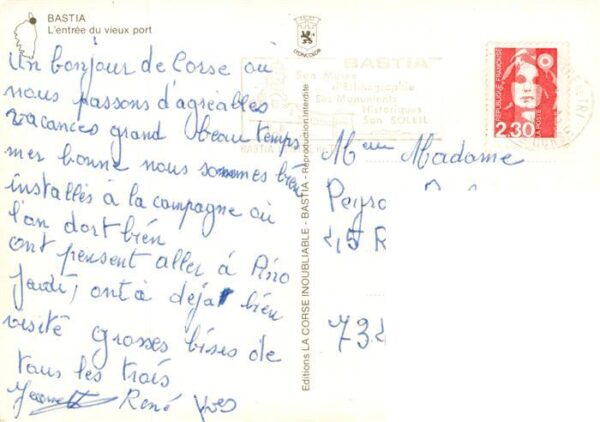 BASTIA
L'entrée du vieux port
Un bonjour de Corse où
nous passons d'agréables
vacances grand beau temps
mer bonne nous sommes bien
installés à la campagne où
l'on dort bien
ont pensent aller à Pino
jeudi, ont à déjà bien
visité grosses bises de
tous les trois
René Yves
LYONCOLOR
BASTIA
Son Musée
d'Ethnographie
Ses Monuments
Historiques
Son SOLEIL
BASTIA
Editions LA CORSE INOUBLIABLE - BASTIA - Reproduction interdite
REPUBLIQUE FRANÇAISE
2,30
LA POSTE
Madame
Peyro